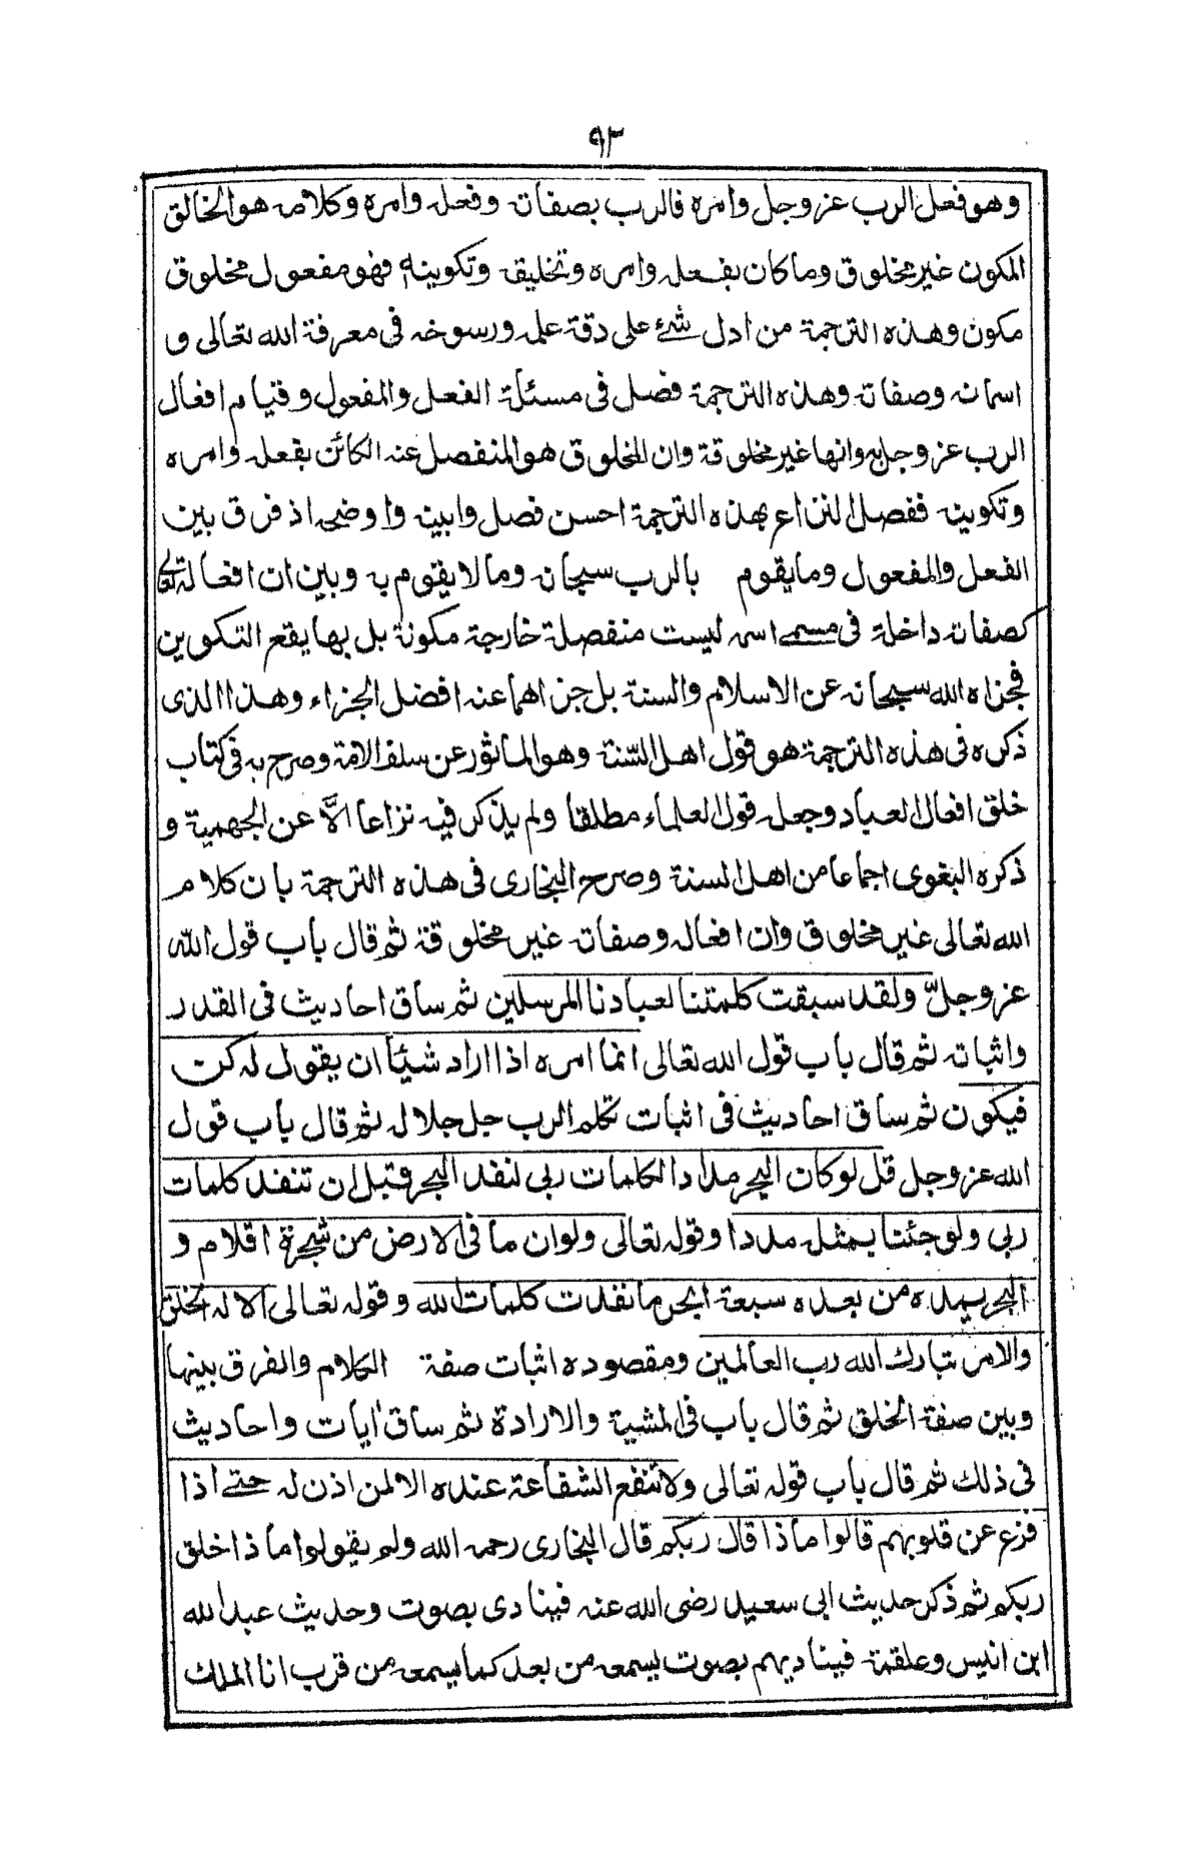 ٩٣
وهو فعل الرب عز وجل وامره فالرب بصفاته وفعله وامره وكلامه هو الخالق
المكون غير مخلوق وما كان بفعله وامره وتخليقه وتكوينه فهو مفعول مخلوق
مكون وهذه الترجمة من ادل شئ على دقة علمه ورسوخه فى معرفة الله تعالى و
اسمائه وصفاته وهذه الترجمة فصل فى مسئلة الفعل والمفعول وقيام افعال
الرب عز وجل به وانها غير مخلوقة وان المخلوق هو المنفصل عنه الكائن بفعله وامره
وتكوينه ففصل النزاع بهذه الترجمة احسن فصل وابينه واوضحه اذ فرق بين
الفعل والمفعول وما يقوم بالرب سبحانه وما لا يقوم به وبين ان افعاله تعالى
كصفاته داخلة فى مسمے اسمه ليست منفصلة خارجة مكونة بل بها يقع التكوين
فجزاه الله سبحانه عن الاسلام والسنة بل جزاهما عنه افضل الجزاء وهذا الذى
ذكره فى هذه الترجمة هو قول اهل السّنة وهو الماثور عن سلف الامة وصرح به فى كتاب
خلق افعال العباد وجعله قول العلماء مطلقا ولم يذكر فيه نزاعا الّا عن الجهمية و
ذكره البغوى اجماعا من اهل السنة وصرح البخارى فى هذه الترجمة بان كلام
الله تعالى غير مخلوق وان افعاله وصفاته غير مخلوقة ثم قال باب قول الله
عز وجلّ ولقد سبقت كلمتنا لعبادنا المرسلين ثم ساق احاديث فى القدر
واثباته ثم قال باب قول الله تعالى انما امره اذا اراد شيئا ان يقول له كن
فيكون ثم ساق احاديث فى اثبات تكلم الرب جل جلاله ثم قال باب قول
الله عز وجل قل لو كان البحر مدادا لكلمات ربى لنفد البحر قبل ان تنفد كلمات
ربى ولو جئنا بمثله مددا وقوله تعالى ولو ان ما فى الارض من شجرة اقلام و
البحر يمده من بعده سبعة ابحر ما نفدت كلمات الله وقوله تعالى الا له الخلق
والامر تبارك الله رب العالمين ومقصوده اثبات صفة الكلام والفرق بينها
وبين صفة الخلق ثم قال باب فى المشية والارادة ثم ساق ايات واحاديث
فى ذلك ثم قال باب قوله تعالى ولا تنفع الشفاعة عنده الا لمن اذن له حتے اذا
فزع عن قلوبهم قالوا ماذا قال ربكم قال البخارى رحمه الله ولم يقولوا ماذا خلق
ربكم ثم ذكر حديث ابى سعيد رضى الله عنه فينادى بصوت وحديث عبد الله
ابن انيس وعلقمة فيناديهم بصوت يسمعه من بعد كما يسمعه من قرب انا الملك